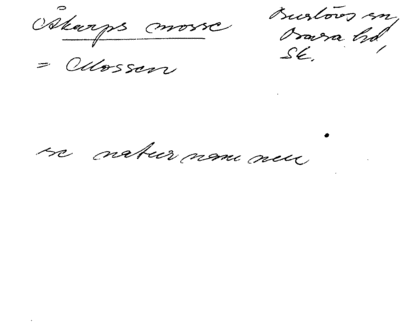 Åkarps mosse
= Mossen
Burlövs sn,
Bara hd,
Sk.
se naturnamnen